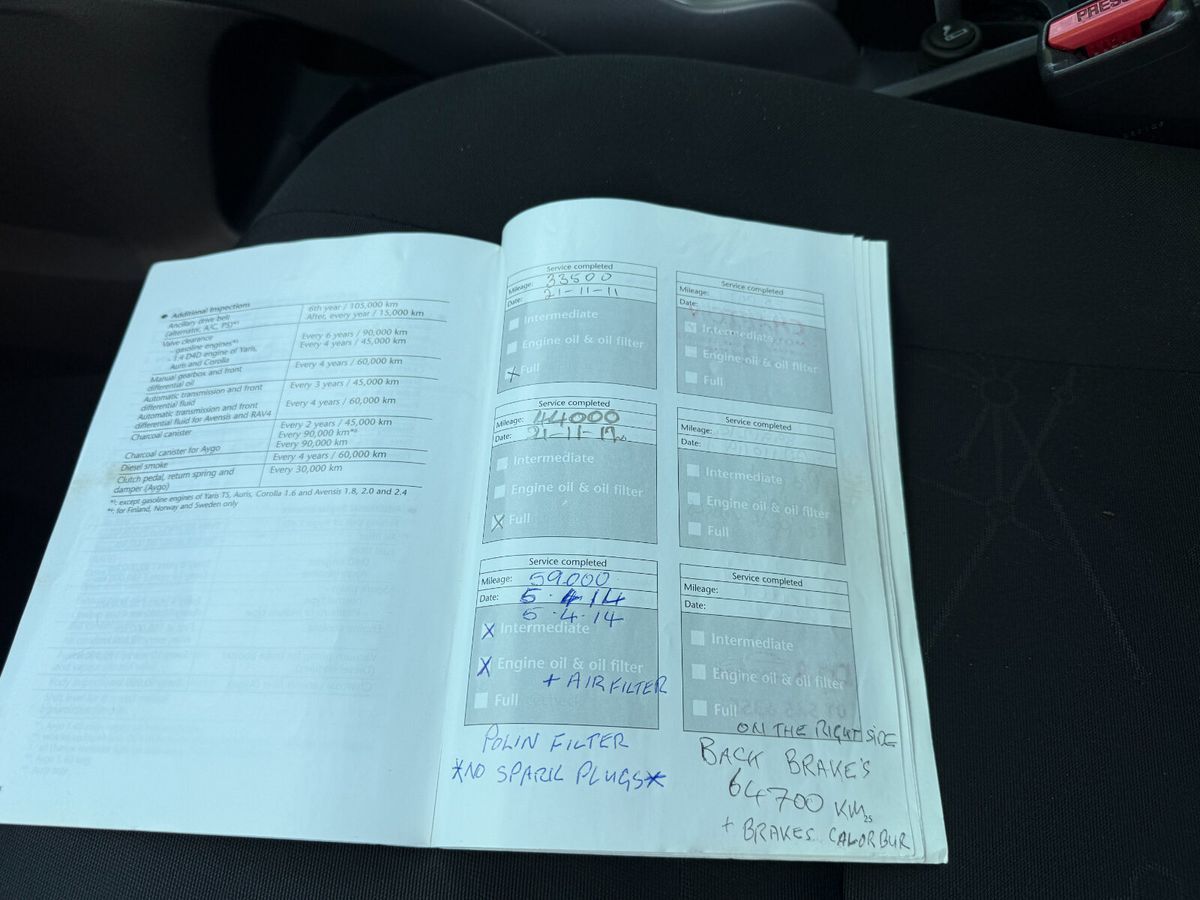 PRESS
Additional Inspections
Ancillary drive belt
(alternator, A/C, PS)*¹
6th year / 105,000 km
After, every year / 15,000 km
Valve clearance
- gasoline engines*¹
- 1.4 D4D engine of Yaris,
Auris and Corolla
Every 6 years / 90,000 km
Every 4 years / 45,000 km
Manual gearbox and front
differential oil
Every 4 years / 60,000 km
Automatic transmission and front
differential fluid
Every 3 years / 45,000 km
Automatic transmission and front
differential fluid for Avensis and RAV4
Every 4 years / 60,000 km
Charcoal canister
Every 2 years / 45,000 km
Every 90,000 km*²
Charcoal canister for Aygo
Every 90,000 km
Diesel smoke
Every 4 years / 60,000 km
Clutch pedal, return spring and
damper (Aygo)
Every 30,000 km
*¹: except gasoline engines of Yaris TS, Auris, Corolla 1.6 and Avensis 1.8, 2.0 and 2.4
*²: for Finland, Norway and Sweden only
Service completed
Mileage: 33500
Date: 21-11-11
Intermediate
Engine oil & oil filter
X Full
Service completed
Mileage: 44000
Date: 21-11-12
Intermediate
Engine oil & oil filter
X Full
Service completed
Mileage: 59000
Date: 5.4.14
5.4.14
X Intermediate
X Engine oil & oil filter
+ AIR FILTER
Full
POLIN FILTER
*NO SPARK PLUGS*
Service completed
Mileage:
Date:
Intermediate
Engine oil & oil filter
Full
Service completed
Mileage:
Date:
Intermediate
Engine oil & oil filter
Full
Service completed
Mileage:
Date:
Intermediate
Engine oil & oil filter
Full
ON THE RIGHT SIDE
BACK BRAKE'S
64700 KMs
+ BRAKES CALORBUR